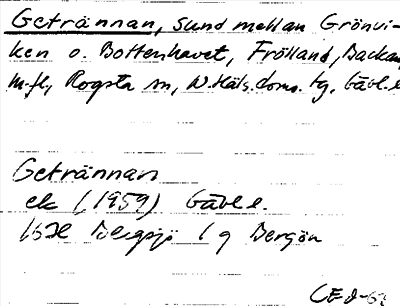 Getrännan, sund mellan Grönvi-
ken o. Bottenhavet, Frölland, Backan
m.fl, Rogsta sn, N.Häls.doms. tg, Gävl.l
Getrännan
ek (1959) Gävl.l.
16H Bergsjö / g Bergön
CEJ-6